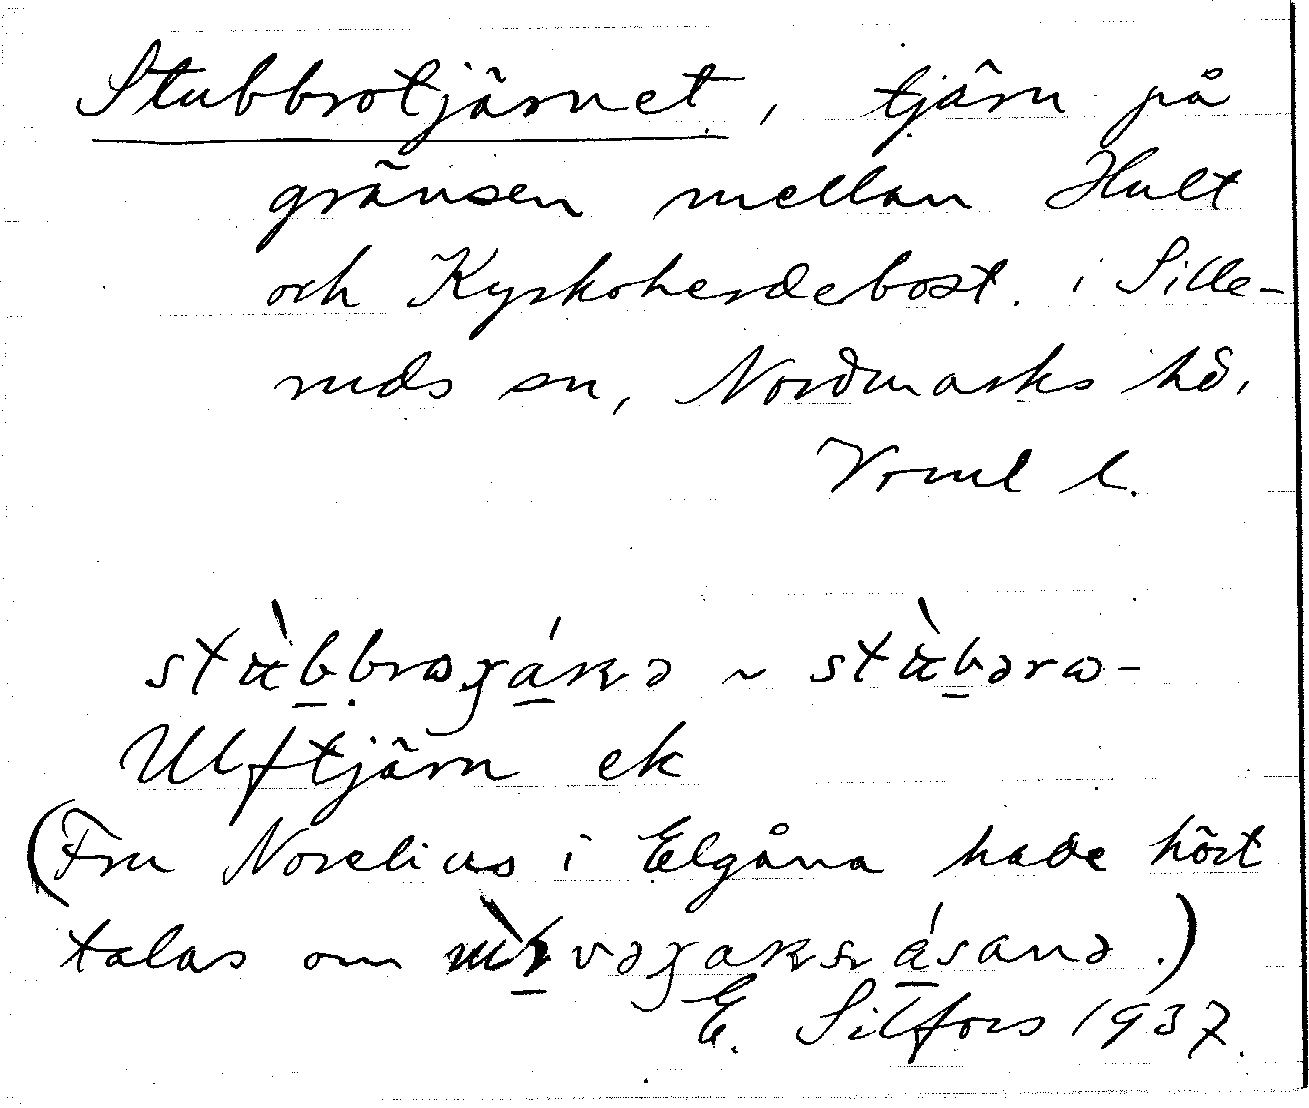 Stubbrotjärnet, tjärn på
gränsen mellan Hult
och Kyrkoherdebost. i Sille-
ruds sn, Nordmarks hd,
Vrml l.
stùbbroȷánə ~ stùbərω-
Ulftjärn ek
(Fru Norelius i Elgåna hade hört
talas om .)
E. Silfors 1937.